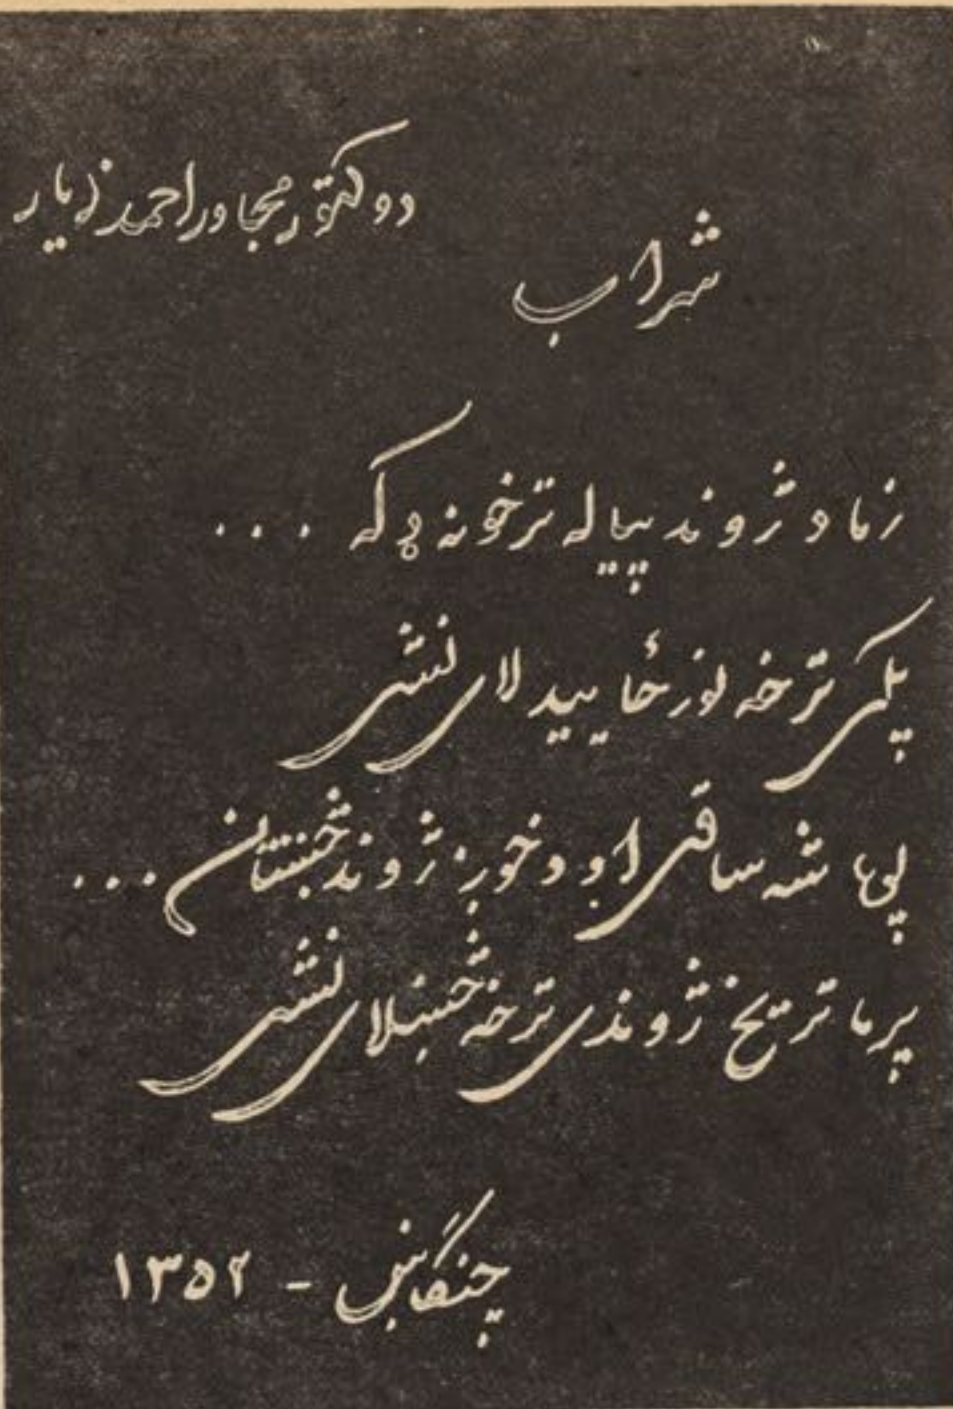 دوکتور مجاور احمد زیار
شراب
زما د ژوند پیاله ترخونه ډکه ...
پکې ترخه نور ځایېدلای نشي
پیما شه ساقي او د خوږ ژوند څښتان ...
پر ما تریخ ژوندی ترخه څښلای نشي
چنګاښ - ۱۳۵۲